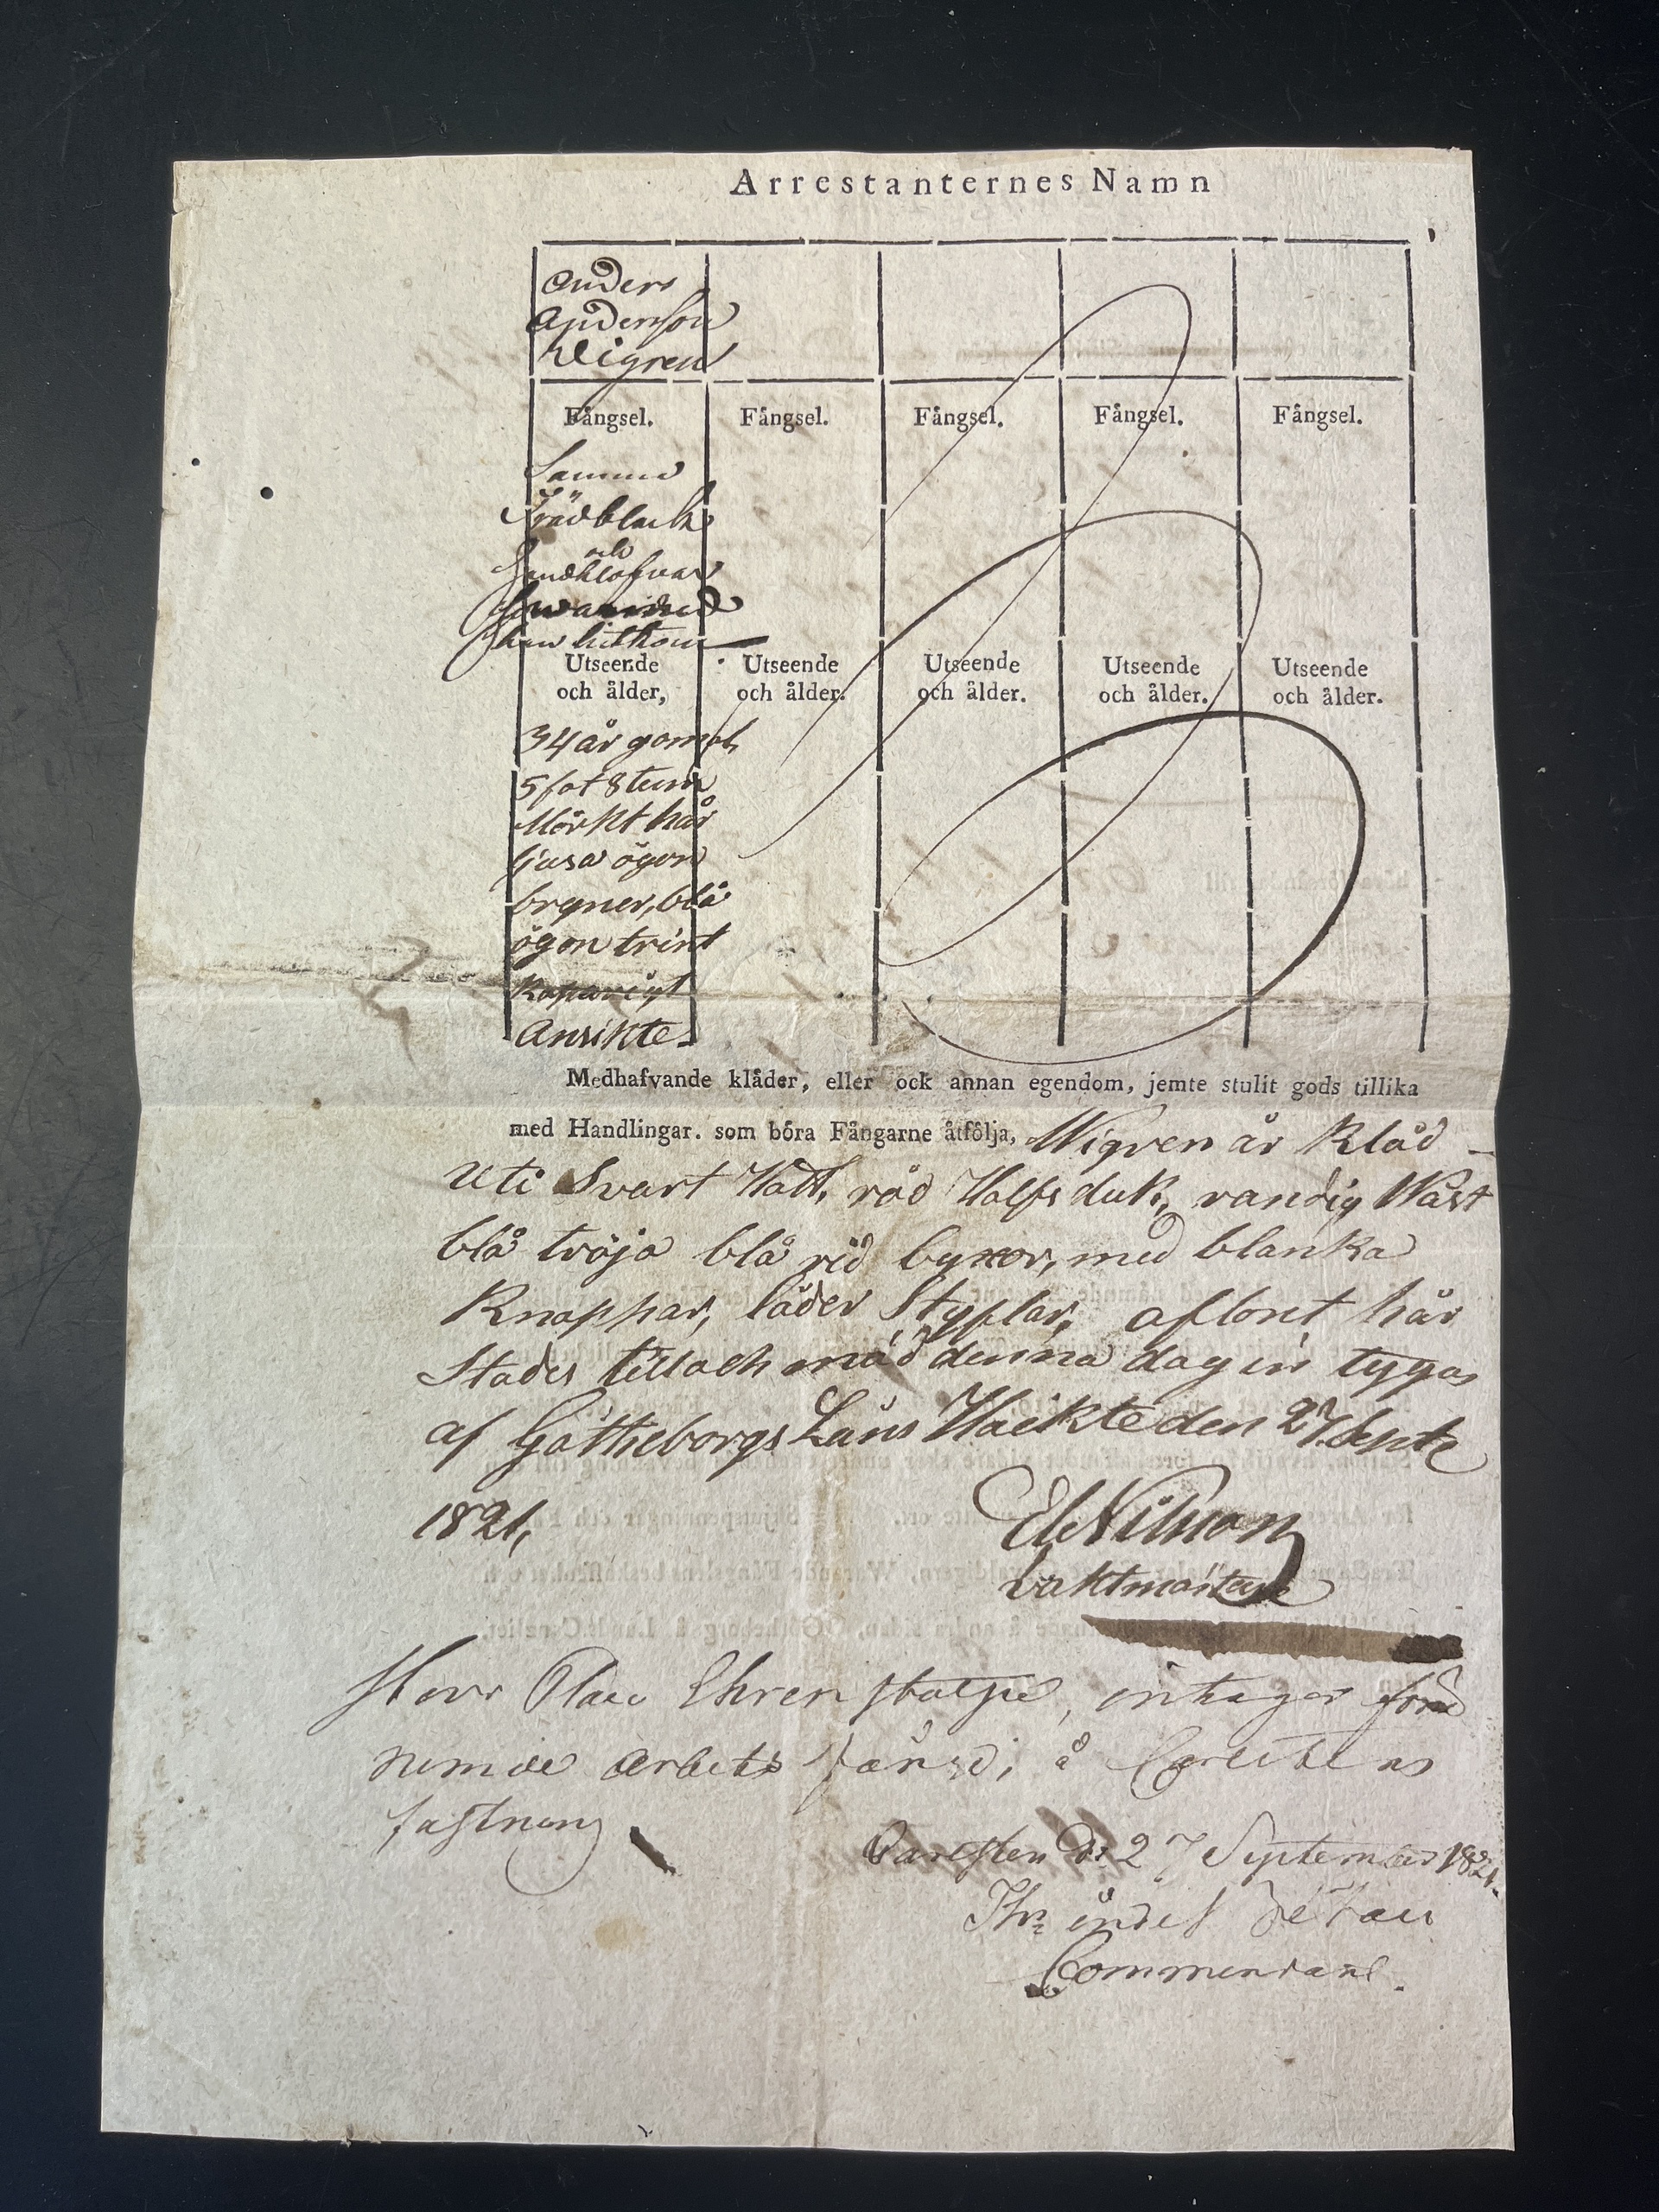 Arrestanternes Namn
Anders
Anderson
Wigren
Fångsel. Fångsel. Fångsel. Fångsel. Fångsel.
Samma
Trädblack
och
Handklofvar
Utseende Utseende Utseende Utseende Utseende
och ålder, och ålder. och ålder. och ålder. och ålder.
34 år gamal
5 fot 8 tum
Mörkt hår
ljusa ögon
bryner, blå
ögon trint
Koparigt
Ansikte
Medhafvande klåder, eller ock annan egendom, jemte stulit gods tillika
med Handlingar. som böra Fångarne åtfölja, Wigren är Kläd
uti Svart Hatt, röd Halfs duk, randig Wäst
blå tröja blå rid byxor, med blanka
Knappar, läder Styflar, aflönt här
Städes till och mäd denna dag in tygas
af Göttheborgs Läns Häckte den 27 Septe
1821,
Nilsson
Vaktmästare
Herr Ehrenstolpe, intager
nemde arbets å Carlstens
fästning
Carlsten d: 27 September 1821.
Commendant.